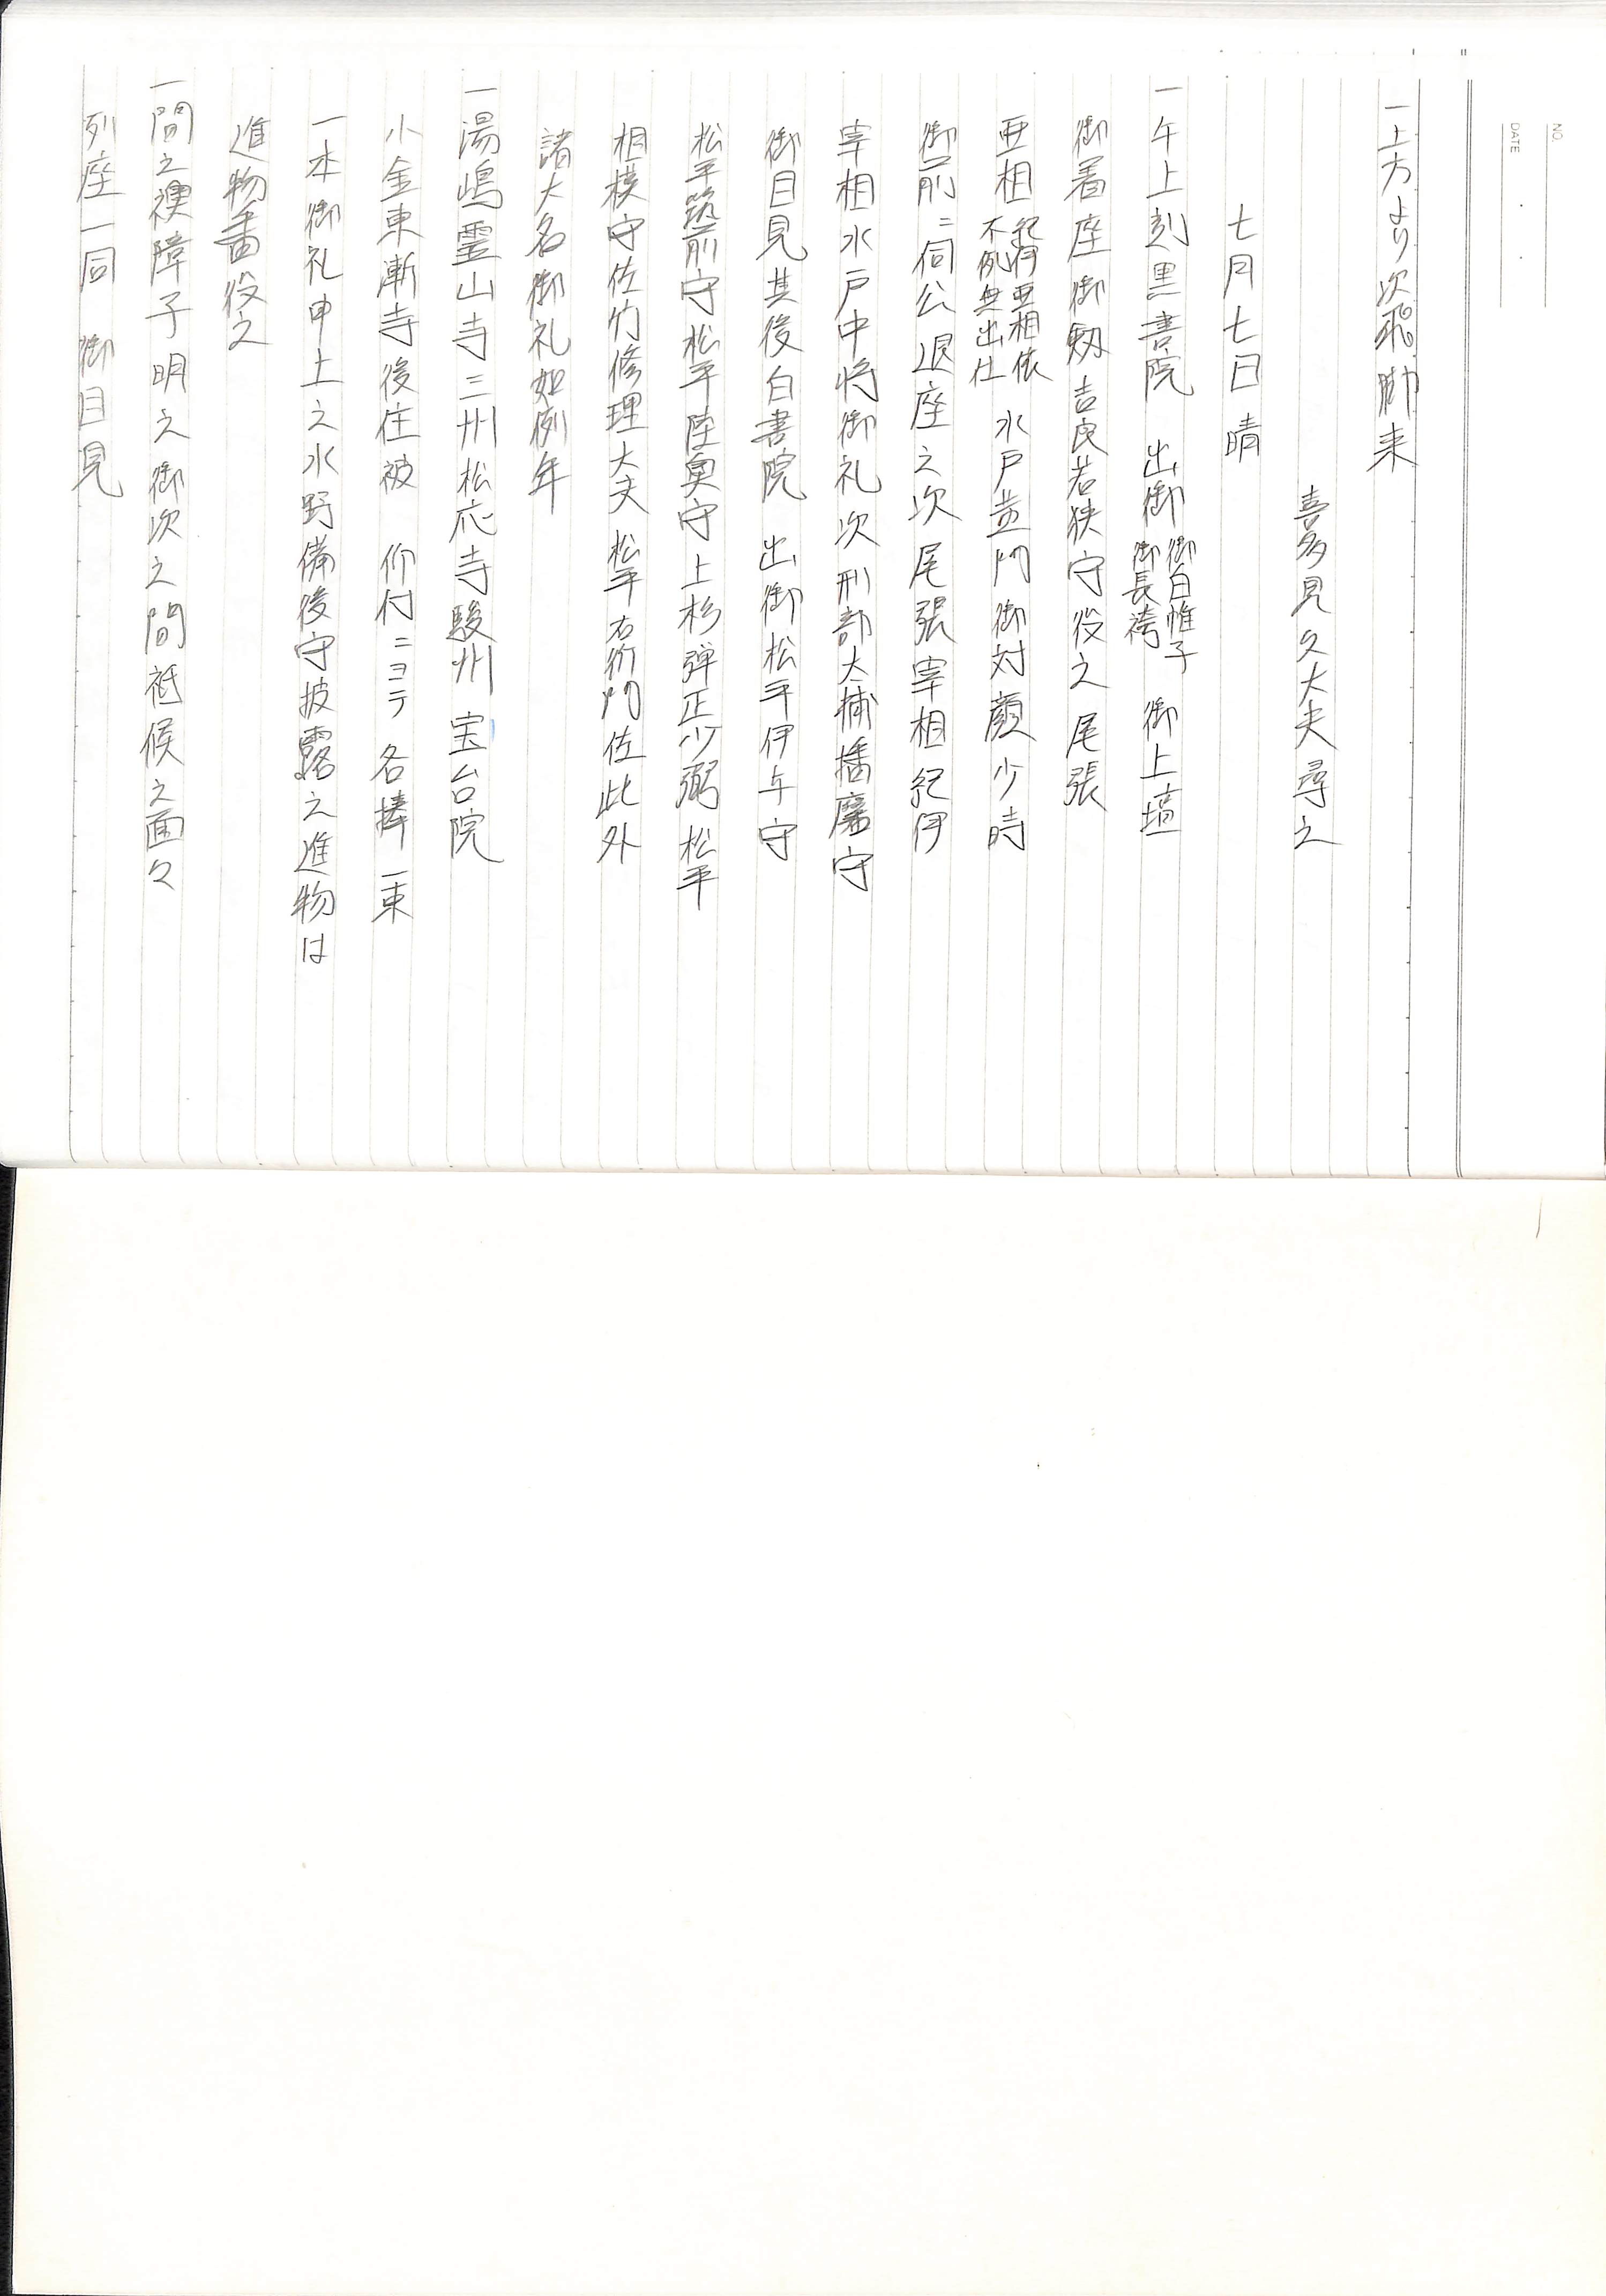 NO.
DATE
一上方より次飛脚来
喜多見久大夫尋之
七月七日 晴
一午上刻黒書院 出御 御白帷子 御長袴 御上壇
御着座御剱吉良若狭守役之尾張
亜相 紀伊亜相依 不例無出仕 水戸黄門御対顔少時
御前ニ伺公退座之次尾張宰相紀伊
宰相水戸中将御礼次刑部大輔播磨守
御目見其後白書院 出御松平伊与守
松平筑前守松平陸奥守上杉弾正少弼松平
相模守佐竹修理大夫松平右衛門佐此外
諸大名御礼如例年
一湯嶋霊山寺三州松応寺駿州宝台院
小金東漸寺後住被 仰付ニヨテ各捧一束
一本御礼申上之水野備後守披露之進物は
進物番役之
一間之襖障子明之御次之間祗候之面々
列座一同 御目見